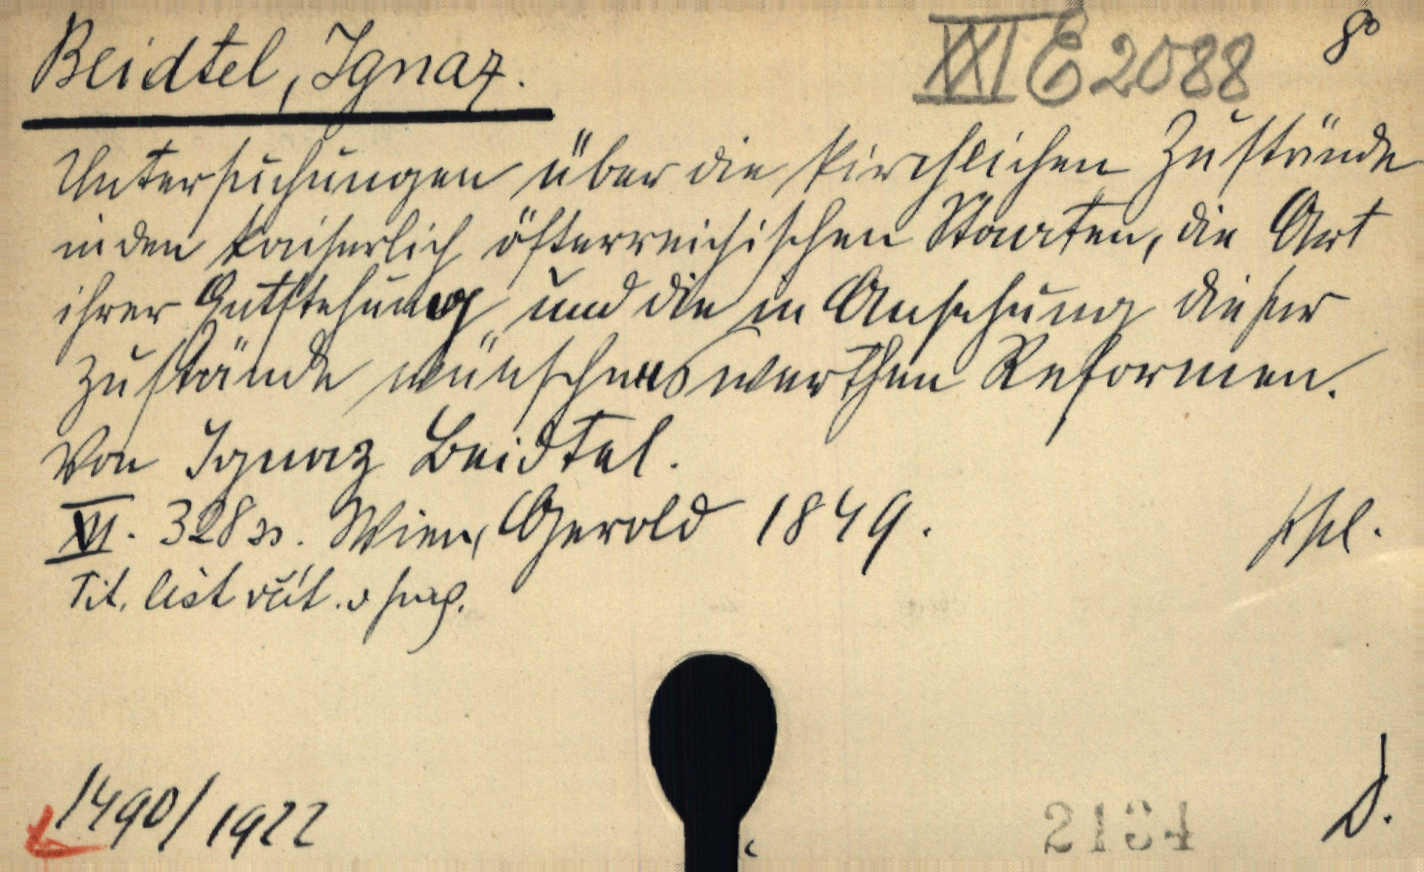 Beidtel, Ignaz. XXI E 2088 8°
Untersuchungen über die kirchlichen Zustände
in den kaiserlich österreichischen Staaten, die Art
ihrer Entstehung und die in Ansehung dieser
Zustände wünschenswerthen Reformen.
Von Ignaz Beidtel.
XVI. 328 SS. Wien, Gerold 1849.
Tit. list
1490/1922 D.